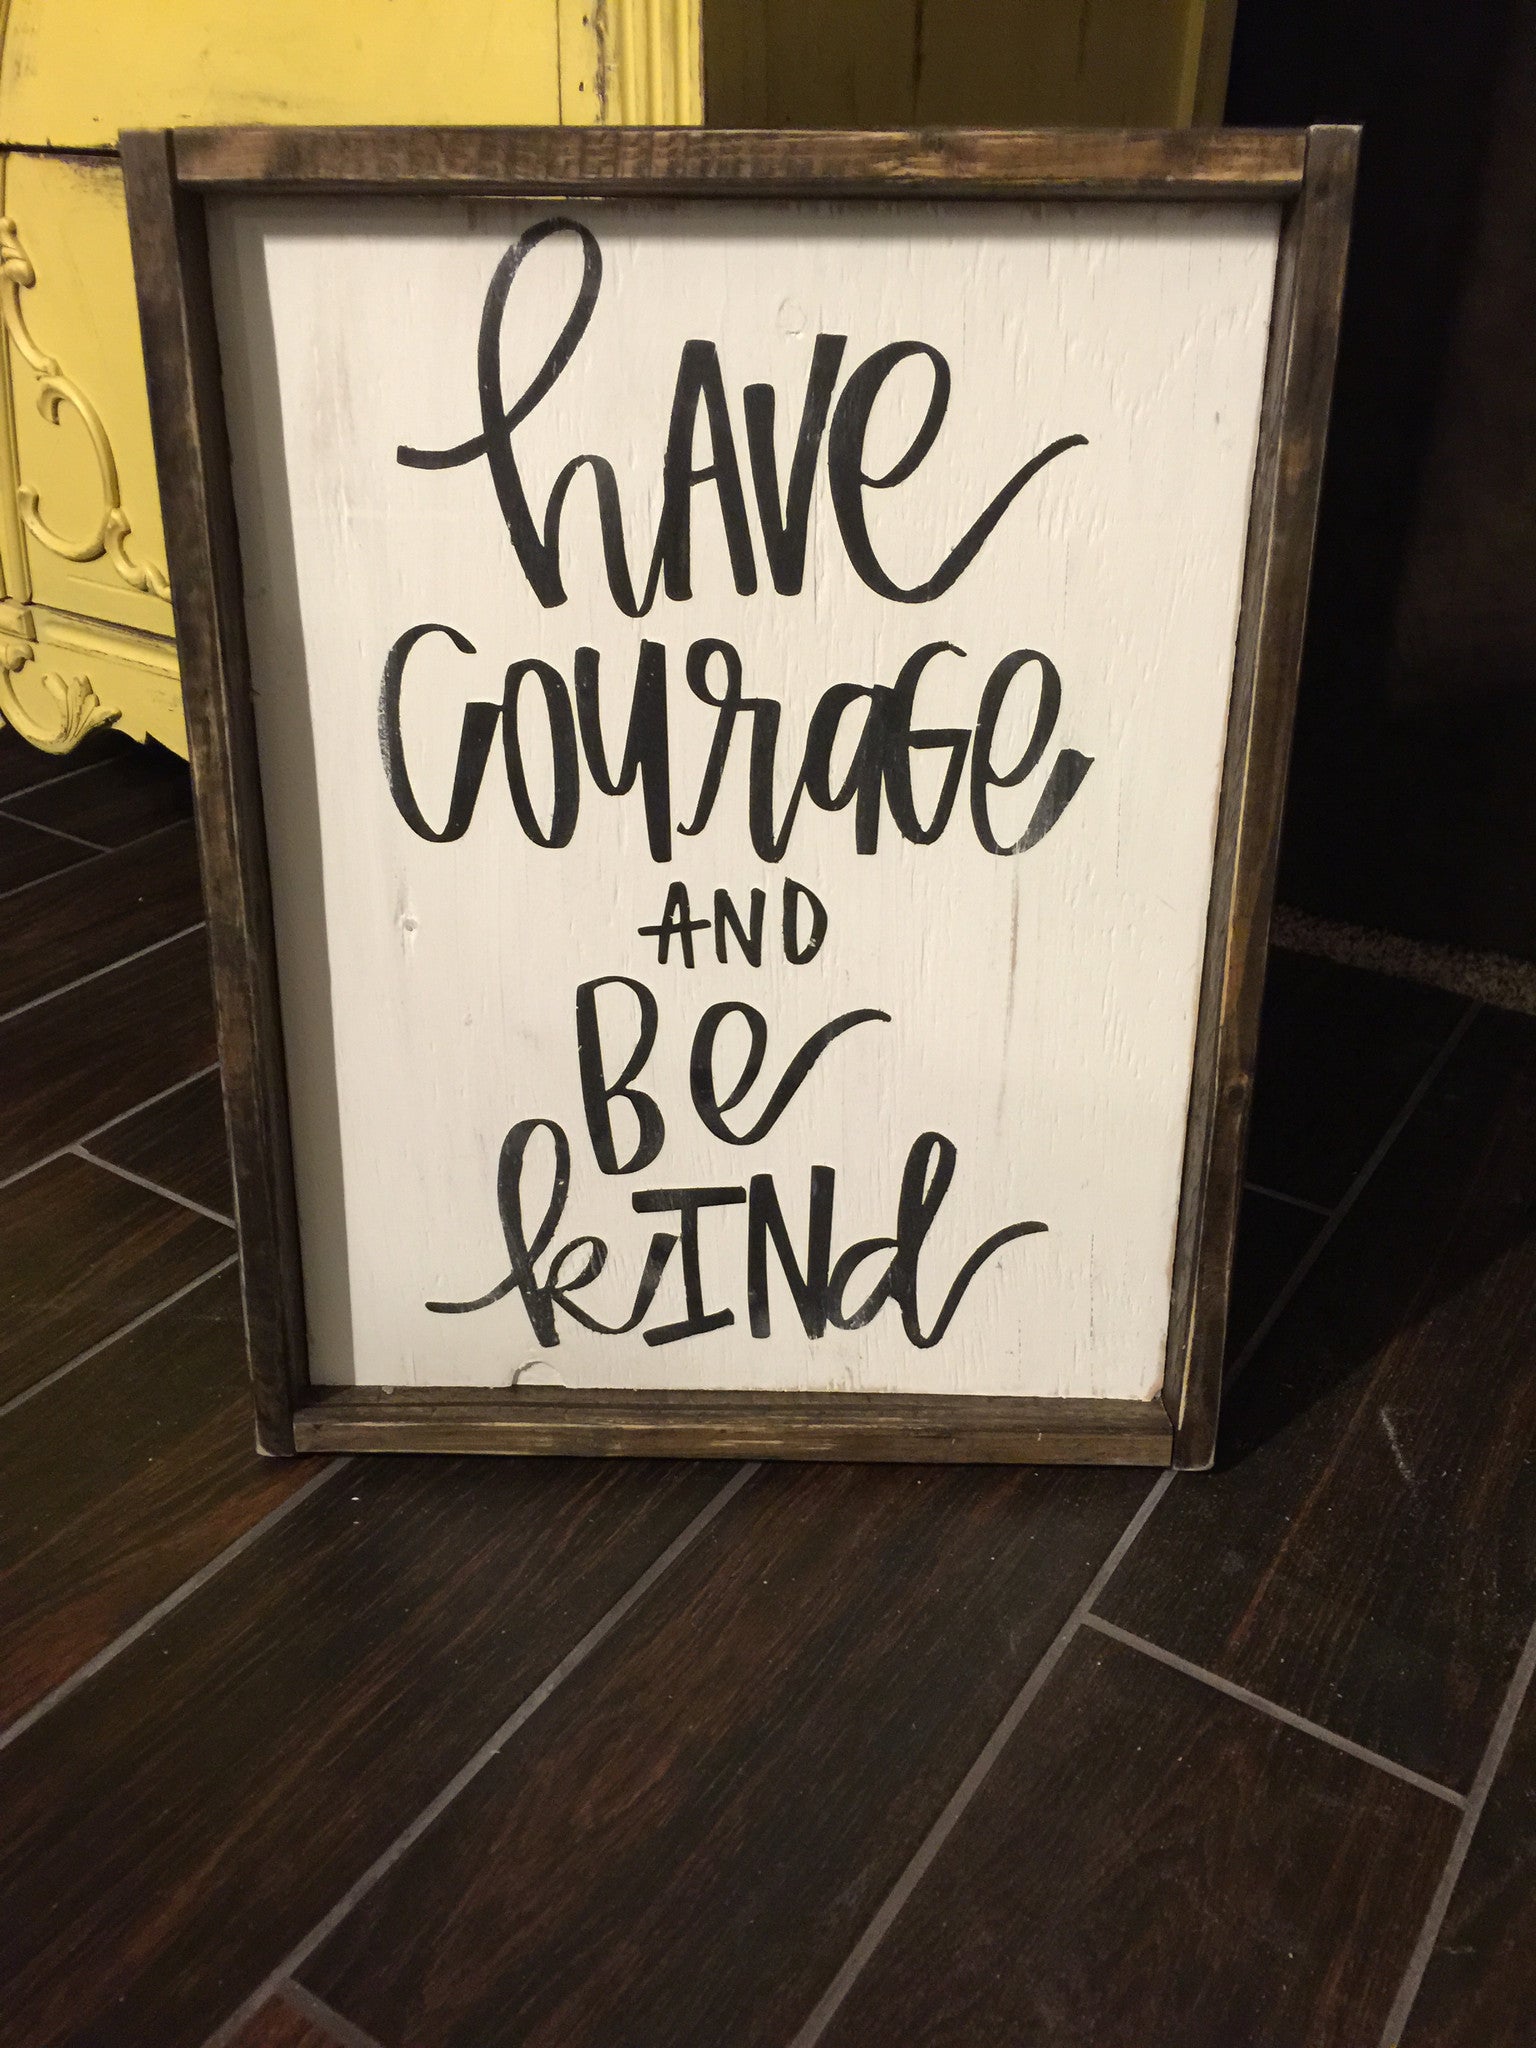 hAVe
CouraGe
AND
Be
kINd